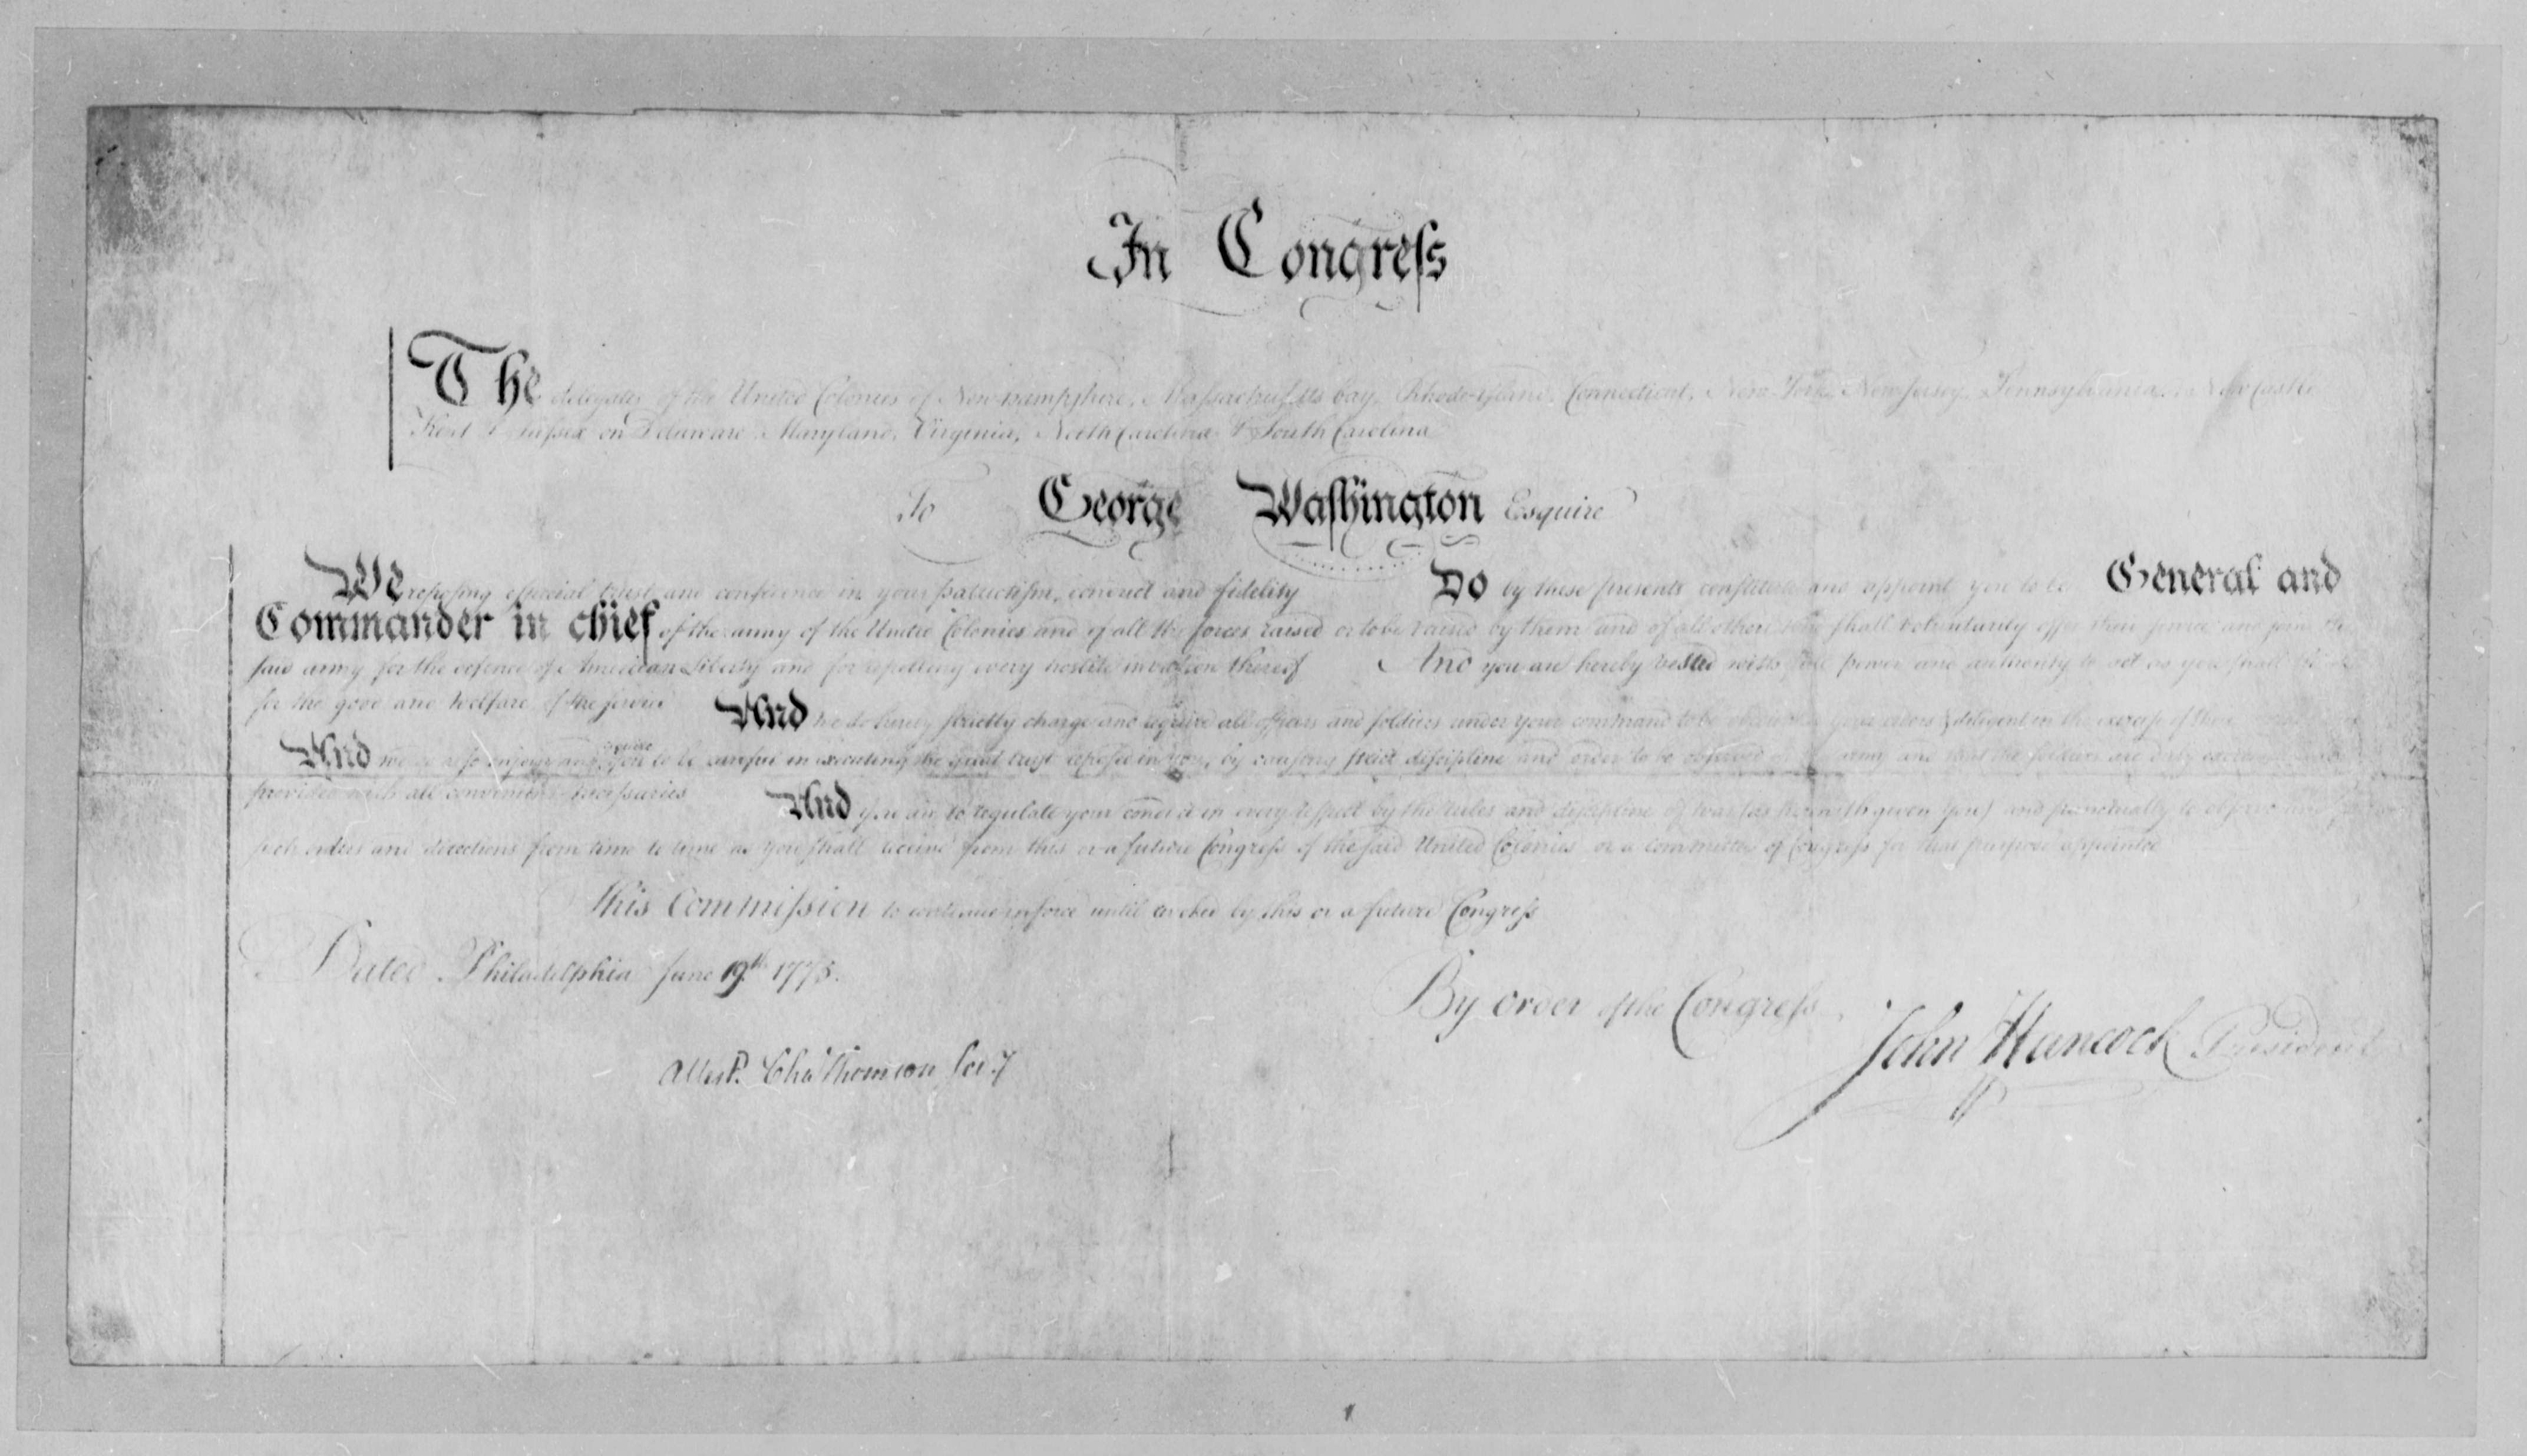 In Congreſs
The delegates of the United Colonies of New-hampſhire, Maſsachuſetts bay, Rhode-iſland, Connecticut, New-York, New-Jerſey, Pennsylvania, New Castle
Kent & Suſsex on Delaware, Maryland, Virginia, North Carolina & South Carolina
To George Waſhington Esquire
We repoſing eſpecial truſt and confidence in your patriotiſm, conduct and fidelity Do by these preſents conſtitute and appoint you to be General and
Commander in chief of the army of the United Colonies and of all the forces raised or to be raised by them and of all others who ſhall voluntarily offer their ſervice and join the
ſaid army for the defence of American Liberty and for repelling every hostile invaſion thereof And you are hereby vested with full power and authority to act as you ſhall think
for the good and Welfare of the ſervice And we do hereby ſtrictly charge and require all officers and ſoldiers under your command to be obedient to your orders & diligent in the exerciſe of their
And we do alſo enjoin and require you to be careful in executing the great truſt repoſed in you, by cauſing ſtrict diſcipline and order to be obſerved in the army and that the ſoldiers are duly exerciſed and
provided with all convenient neceſsaries And you are to regulate your conduct in every reſpect by the rules and diſcipline of war (as herewith given you) and punctually to obſerve and follow
ſuch orders and directions from time to time as you ſhall receive from this or a future Congreſs of the ſaid United Colonies or a committee of Congreſs for that purpoſe appointed
This Commiſsion to continue in force until revoked by this or a future Congreſs
Dated Philadelphia June 19th 1775.
By order of the Congreſs
John Hancock President
Attest. Cha Thomson Secy
1